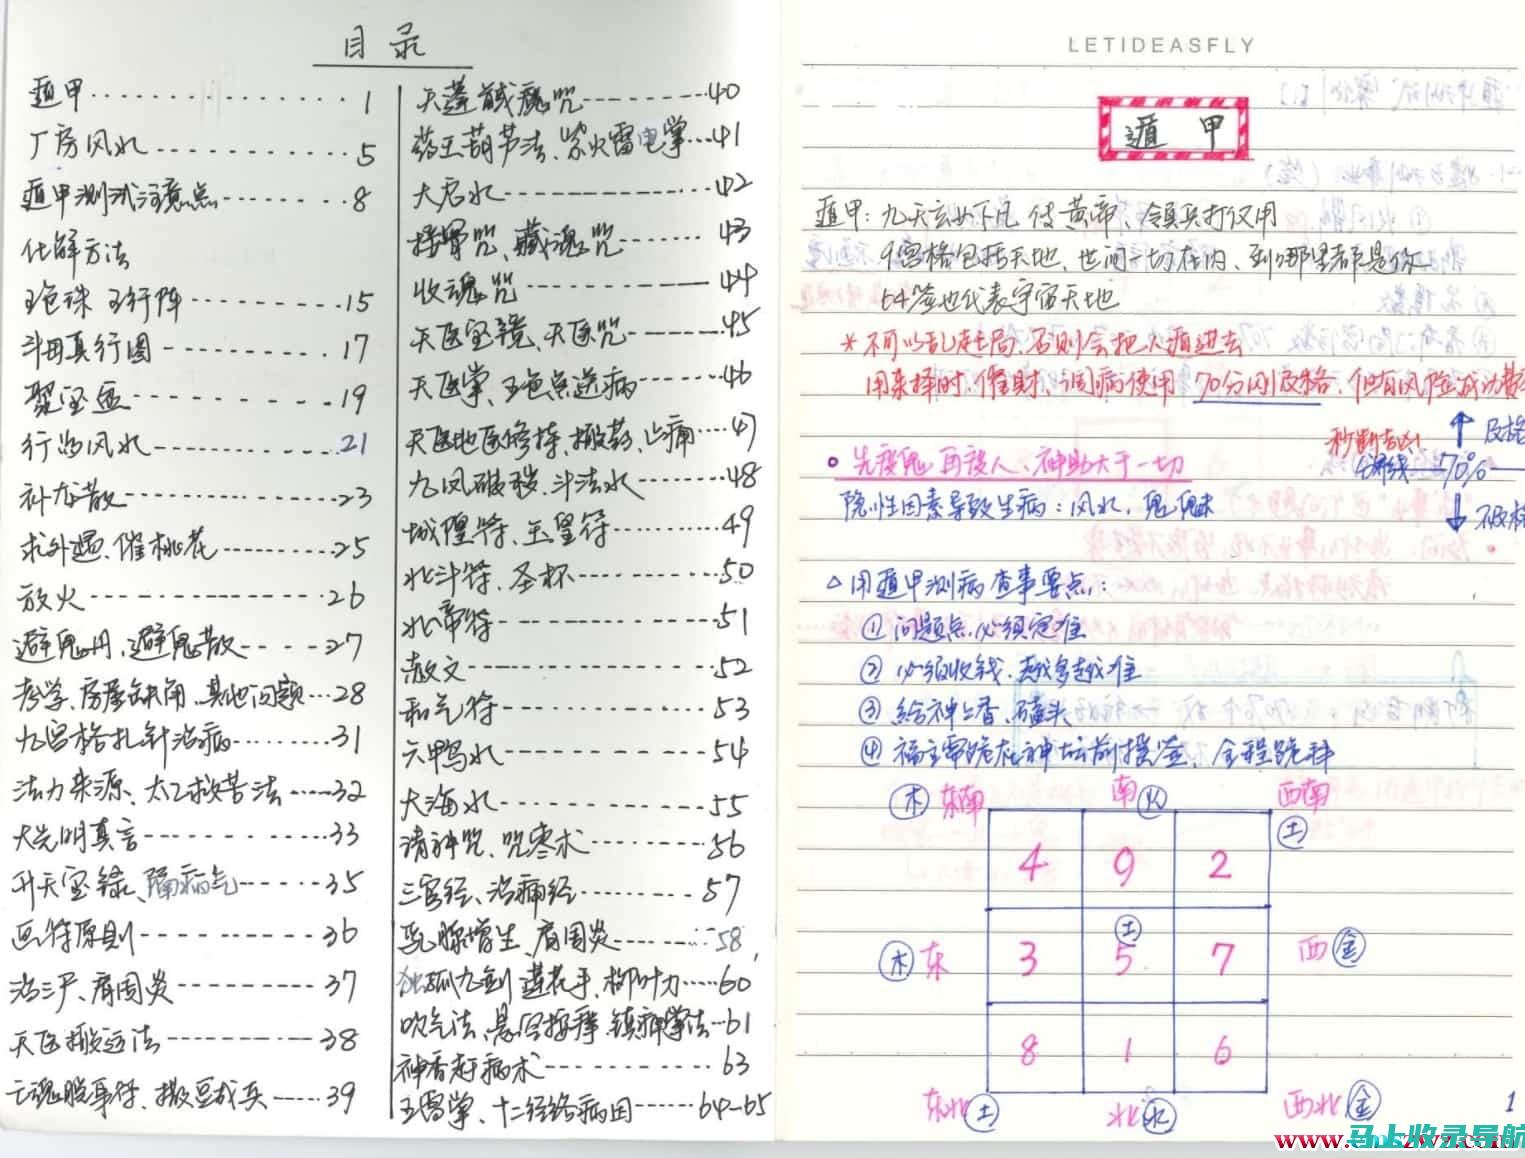 目录
遁甲 1
厂房风水 5
遁甲测试注意点 8
化解方法
五色珠 五行阵 15
斗母真行图 17
聚宝盆 19
行为风水 21
补龙散 23
求外遇、催桃花 25
放火 26
避鬼丹、避鬼散 27
考学、房屋缺角、其他问题 28
九宫格扎针治病 31
法力来源、太乙救苦法 32
大光明真言 33
升天宝箓、隔病气 35
画符原则 36
治三尸、肩周炎 37
天医搬运法 38
亡魂脱身符、撒豆成兵 39
天蓬 咒 40
药王葫芦法、紫火雷电掌 41
大 水 42
接骨咒、藏魂咒 43
收魂咒 44
天医宝镜、天医咒 45
天医掌、五色 送病 46
天医地医修持、撒药、止痛 47
九凤破秽、斗法水 48
城隍符、玉皇符 49
北斗符、圣杯 50
北帝符 51
赦文 52
和气符 53
六鸭水 54
大海水 55
请神咒、咒枣术 56
三官经、治痛经 57
乳腺增生、肩周炎 58
独孤九剑 莲花手、柳叶刀 60
吹气法、悬空按摩、镇神掌法 61
神香赶病术 63
五雷掌、十二经络病因 64-65
LETIDEASFLY
遁甲
遁甲：九天玄女下凡 传黄帝、领兵打仗用
9宫格包括天地、世间一切在内、到哪里都是你
64签也代表宇宙天地
* 不可以乱起局、否则会把人遁进去
用来择时、催财、调病使用 70分刚及格、但有风险成功
秒断吉凶
分界线 70%
及格
不及格
先度鬼 再度人、神助大于一切
隐性因素导致生病：风水，鬼魅
△ 用遁甲测病查事要点：
① 问题点必须定准
② 必须收钱、越多越准
③ 给神上香、磕头
④ 福主需跪在神坛前摇签、全程跪拜
木 东南 南 火 西南 土
4 9 2
土
木 东 3 5 7 西 金
8 1 6
东北 土 北 水 西北 金
1
www.
马上收录导航